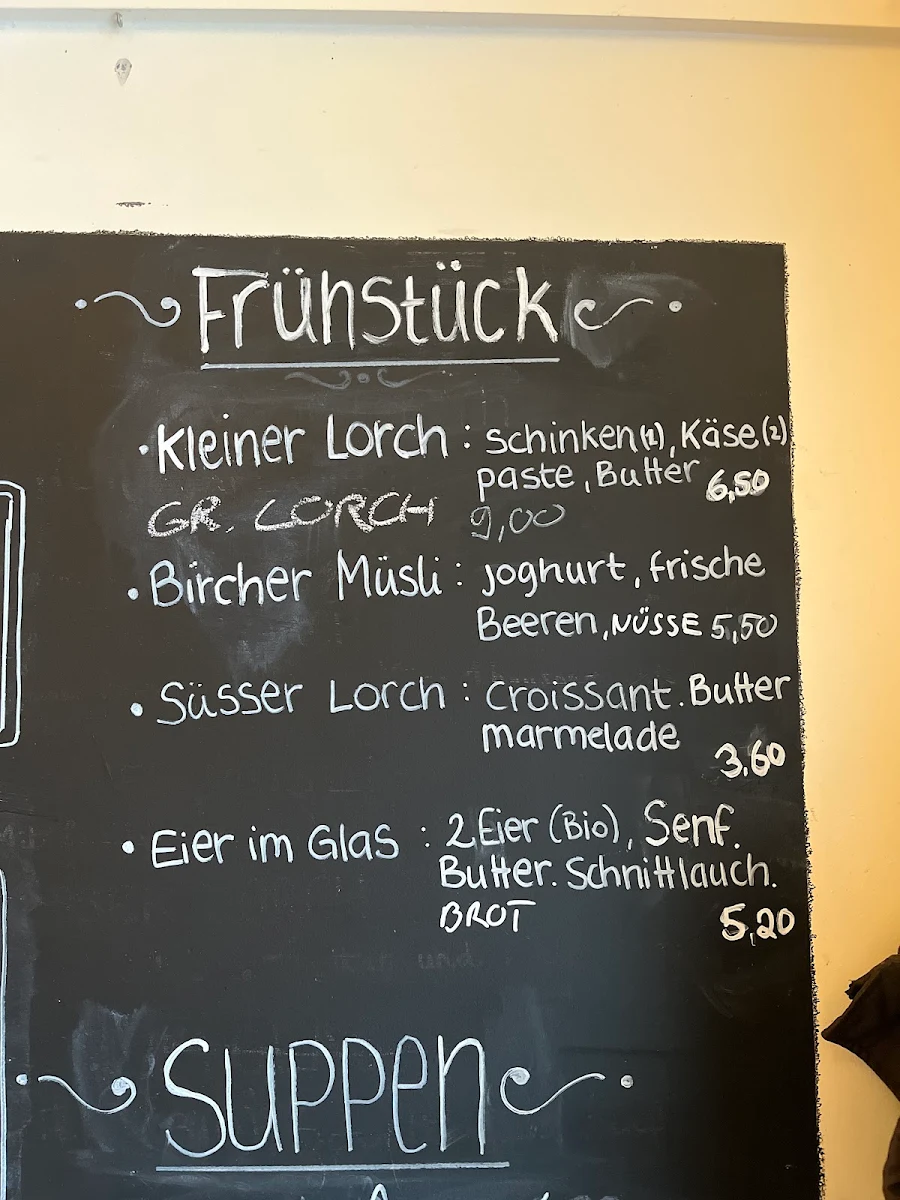 Frühstück
• Kleiner Lorch : Schinken(1), Käse(2)
paste, Butter 6,50
GR. LORCH 9,00
• Bircher Müsli : Joghurt, frische
Beeren, NÜSSE 5,50
• Süsser Lorch : Croissant. Butter
marmelade
3,60
• Eier im Glas : 2 Eier (Bio), Senf.
Butter. Schnittlauch.
BROT 5,20
Suppen